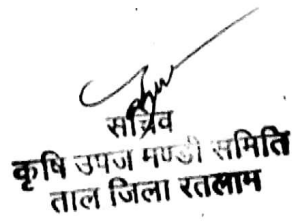 सचिव
कृषि उपज मण्डी समिति
ताल जिला रतलाम